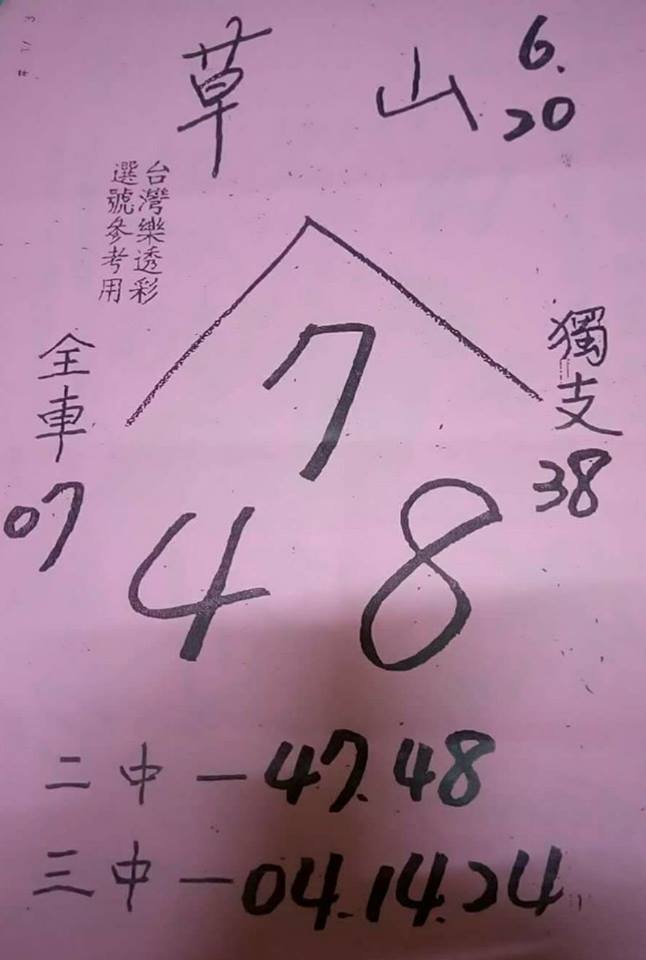 草山 6.
20
台灣樂透彩
選號參考用
全車
07
獨支
38
7
4 8
二中一47.48
三中一04.14.24